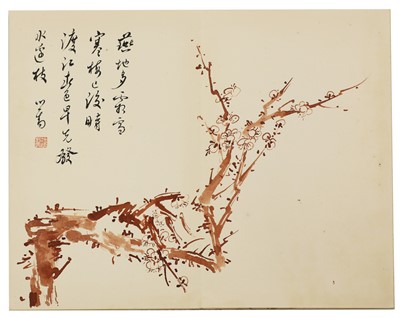 燕地多霜雪
寒梅已後時
渡江春色早先發
水邊枝 心畬